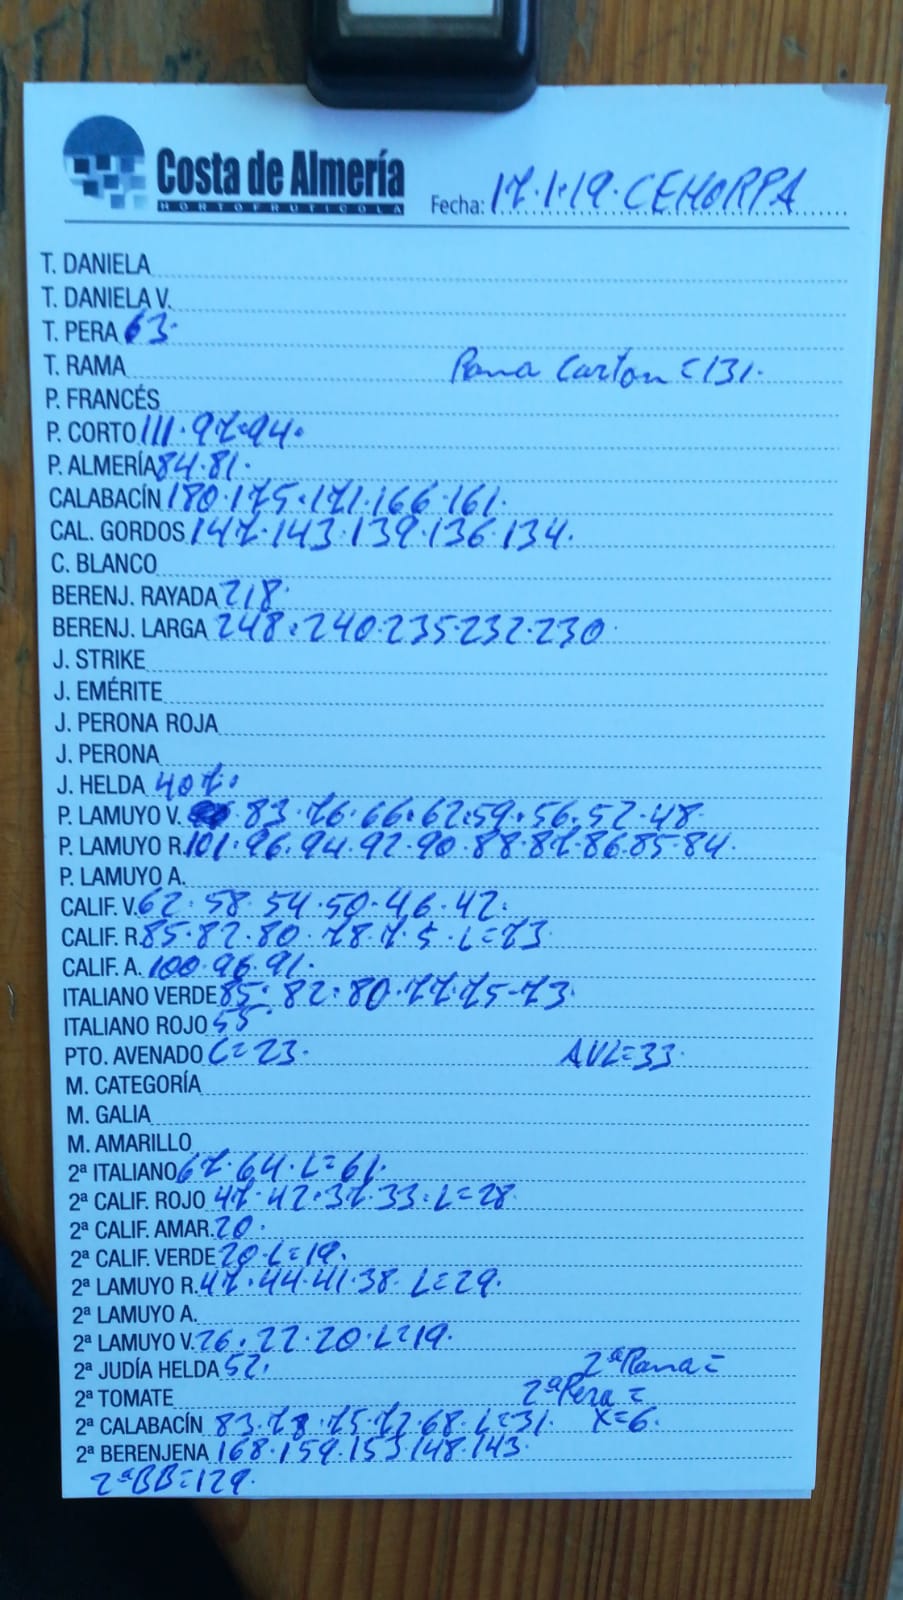 Costa de Almería
HORTOFRUTICOLA
Fecha: 17.1.19. CEHORPA
T. DANIELA
T. DANIELA V.
T. PERA 63.
T. RAMA Rama Carton = 131.
P. FRANCÉS
P. CORTO 111.97.94.
P. ALMERÍA 84.81.
CALABACÍN 180.175.171.166.161.
CAL. GORDOS 147.143.139.136.134.
C. BLANCO
BERENJ. RAYADA 218.
BERENJ. LARGA 248.240.235.232.230.
J. STRIKE
J. EMÉRITE
J. PERONA ROJA
J. PERONA
J. HELDA 407.
P. LAMUYO V. 83.76.66.62.59.56.52.48.
P. LAMUYO R. 101.96.94.92.90.88.87.86.85.84.
P. LAMUYO A.
CALIF. V. 62.58.54.50.46.42.
CALIF. R. 85.82.80.78.75.L=73
CALIF. A. 100.96.91.
ITALIANO VERDE 85.82.80.77.75-73.
ITALIANO ROJO 55
PTO. AVENADO L=23. AVL=33.
M. CATEGORÍA
M. GALIA
M. AMARILLO
2ª ITALIANO 67.64.L=61.
2ª CALIF. ROJO 47.42.37.33.L=28
2ª CALIF. AMAR. 20.
2ª CALIF. VERDE 20.L=19.
2ª LAMUYO R. 47.44.41.38. L=29.
2ª LAMUYO A.
2ª LAMUYO V. 26.22.20.L=19.
2ª JUDÍA HELDA 52. 2ª Rama =
2ª TOMATE 2ª Pera =
2ª CALABACÍN 83.78.75.72.68.L=31. X=6.
2ª BERENJENA 168.159.153.148.143.
2ªBB=129.